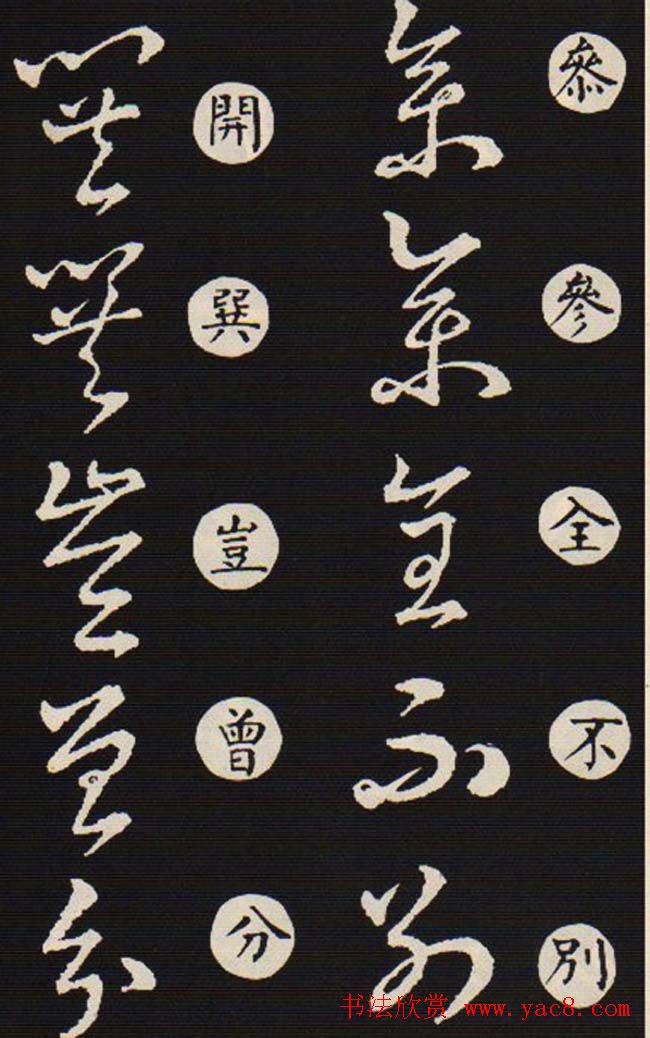 叅參全不別
開巽豈曾分
书法欣赏 www.yac8.com